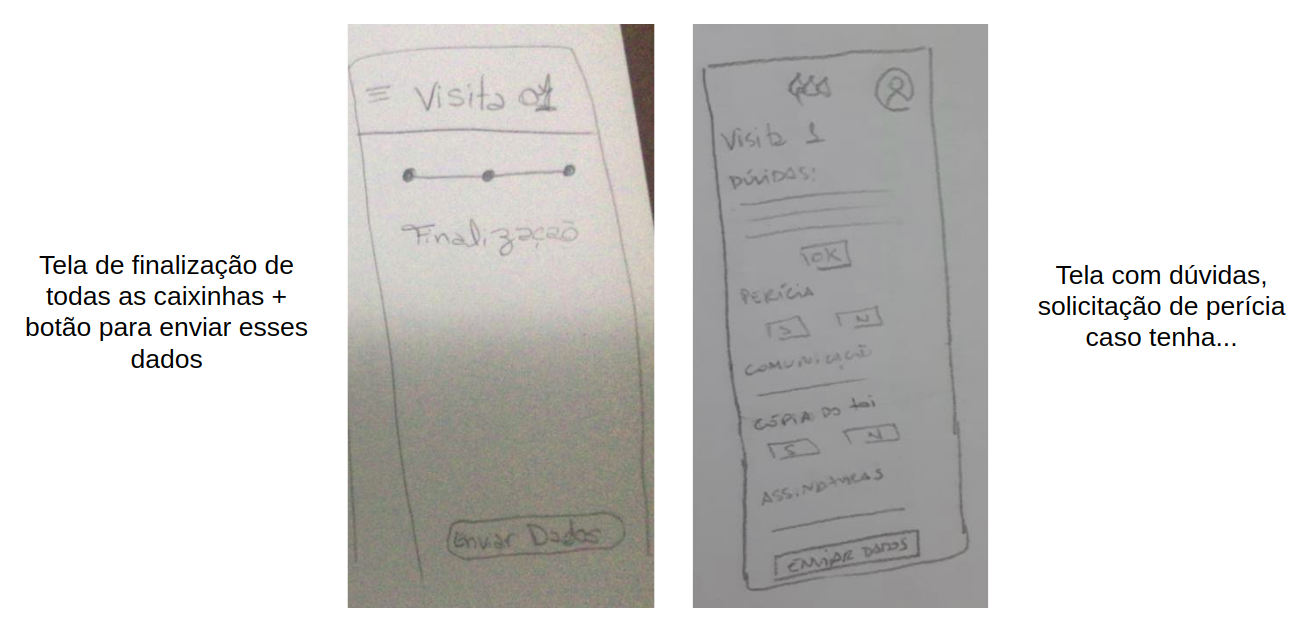 Tela de finalização de
todas as caixinhas +
botão para enviar esses
dados
Visita 01
Finalização
Enviar Dados
Visita 1
DÚVIDAS:
OK
PERÍCIA
S N
COMUNICAÇÃO
CÓPIA DO
S N
ASSINATURAS
ENVIAR DADOS
Tela com dúvidas,
solicitação de perícia
caso tenha...